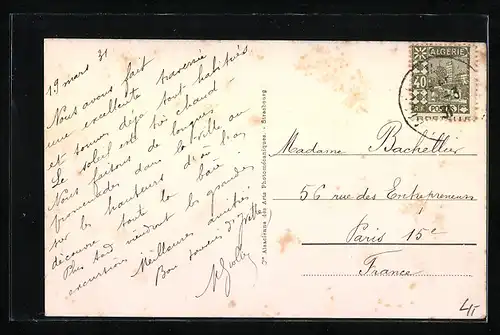 19 mars 31
Nous avons fait
une excellente traversée
et sommes déjà tout habitués
Le soleil est très chaud -
Nous faisons de longues
promenades dans la ville ou
sur les hauteurs d'où l'on
découvre toute la baie.
Plus tard viendront les grandes
excursions
Meilleures amitiés
Bon souvenir d'Yvette
Cie Alsacienne des Arts Photomécaniques. - Strasbourg
ALGERIE
40
POSTES
Madame Bachellier
56 rue des Entrepreneurs
Paris 15e
France